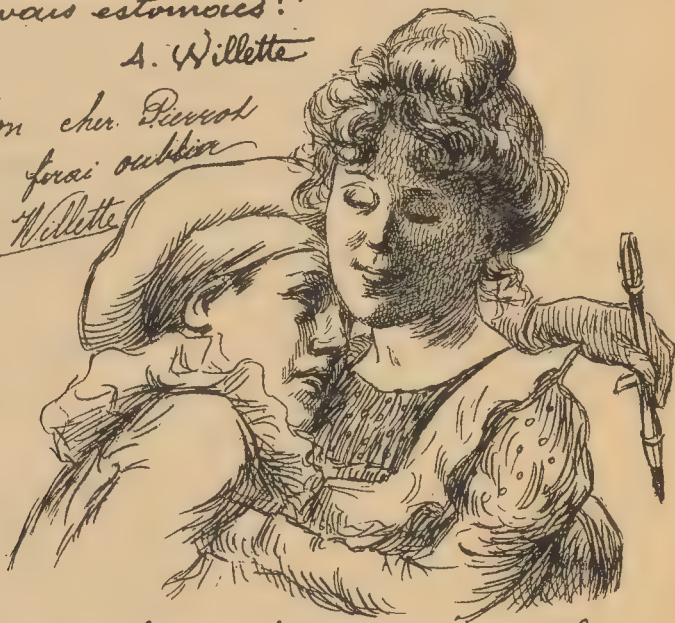 vais estomacs!"
A. Willette
cher Pierrot
ferai oublier
Willette